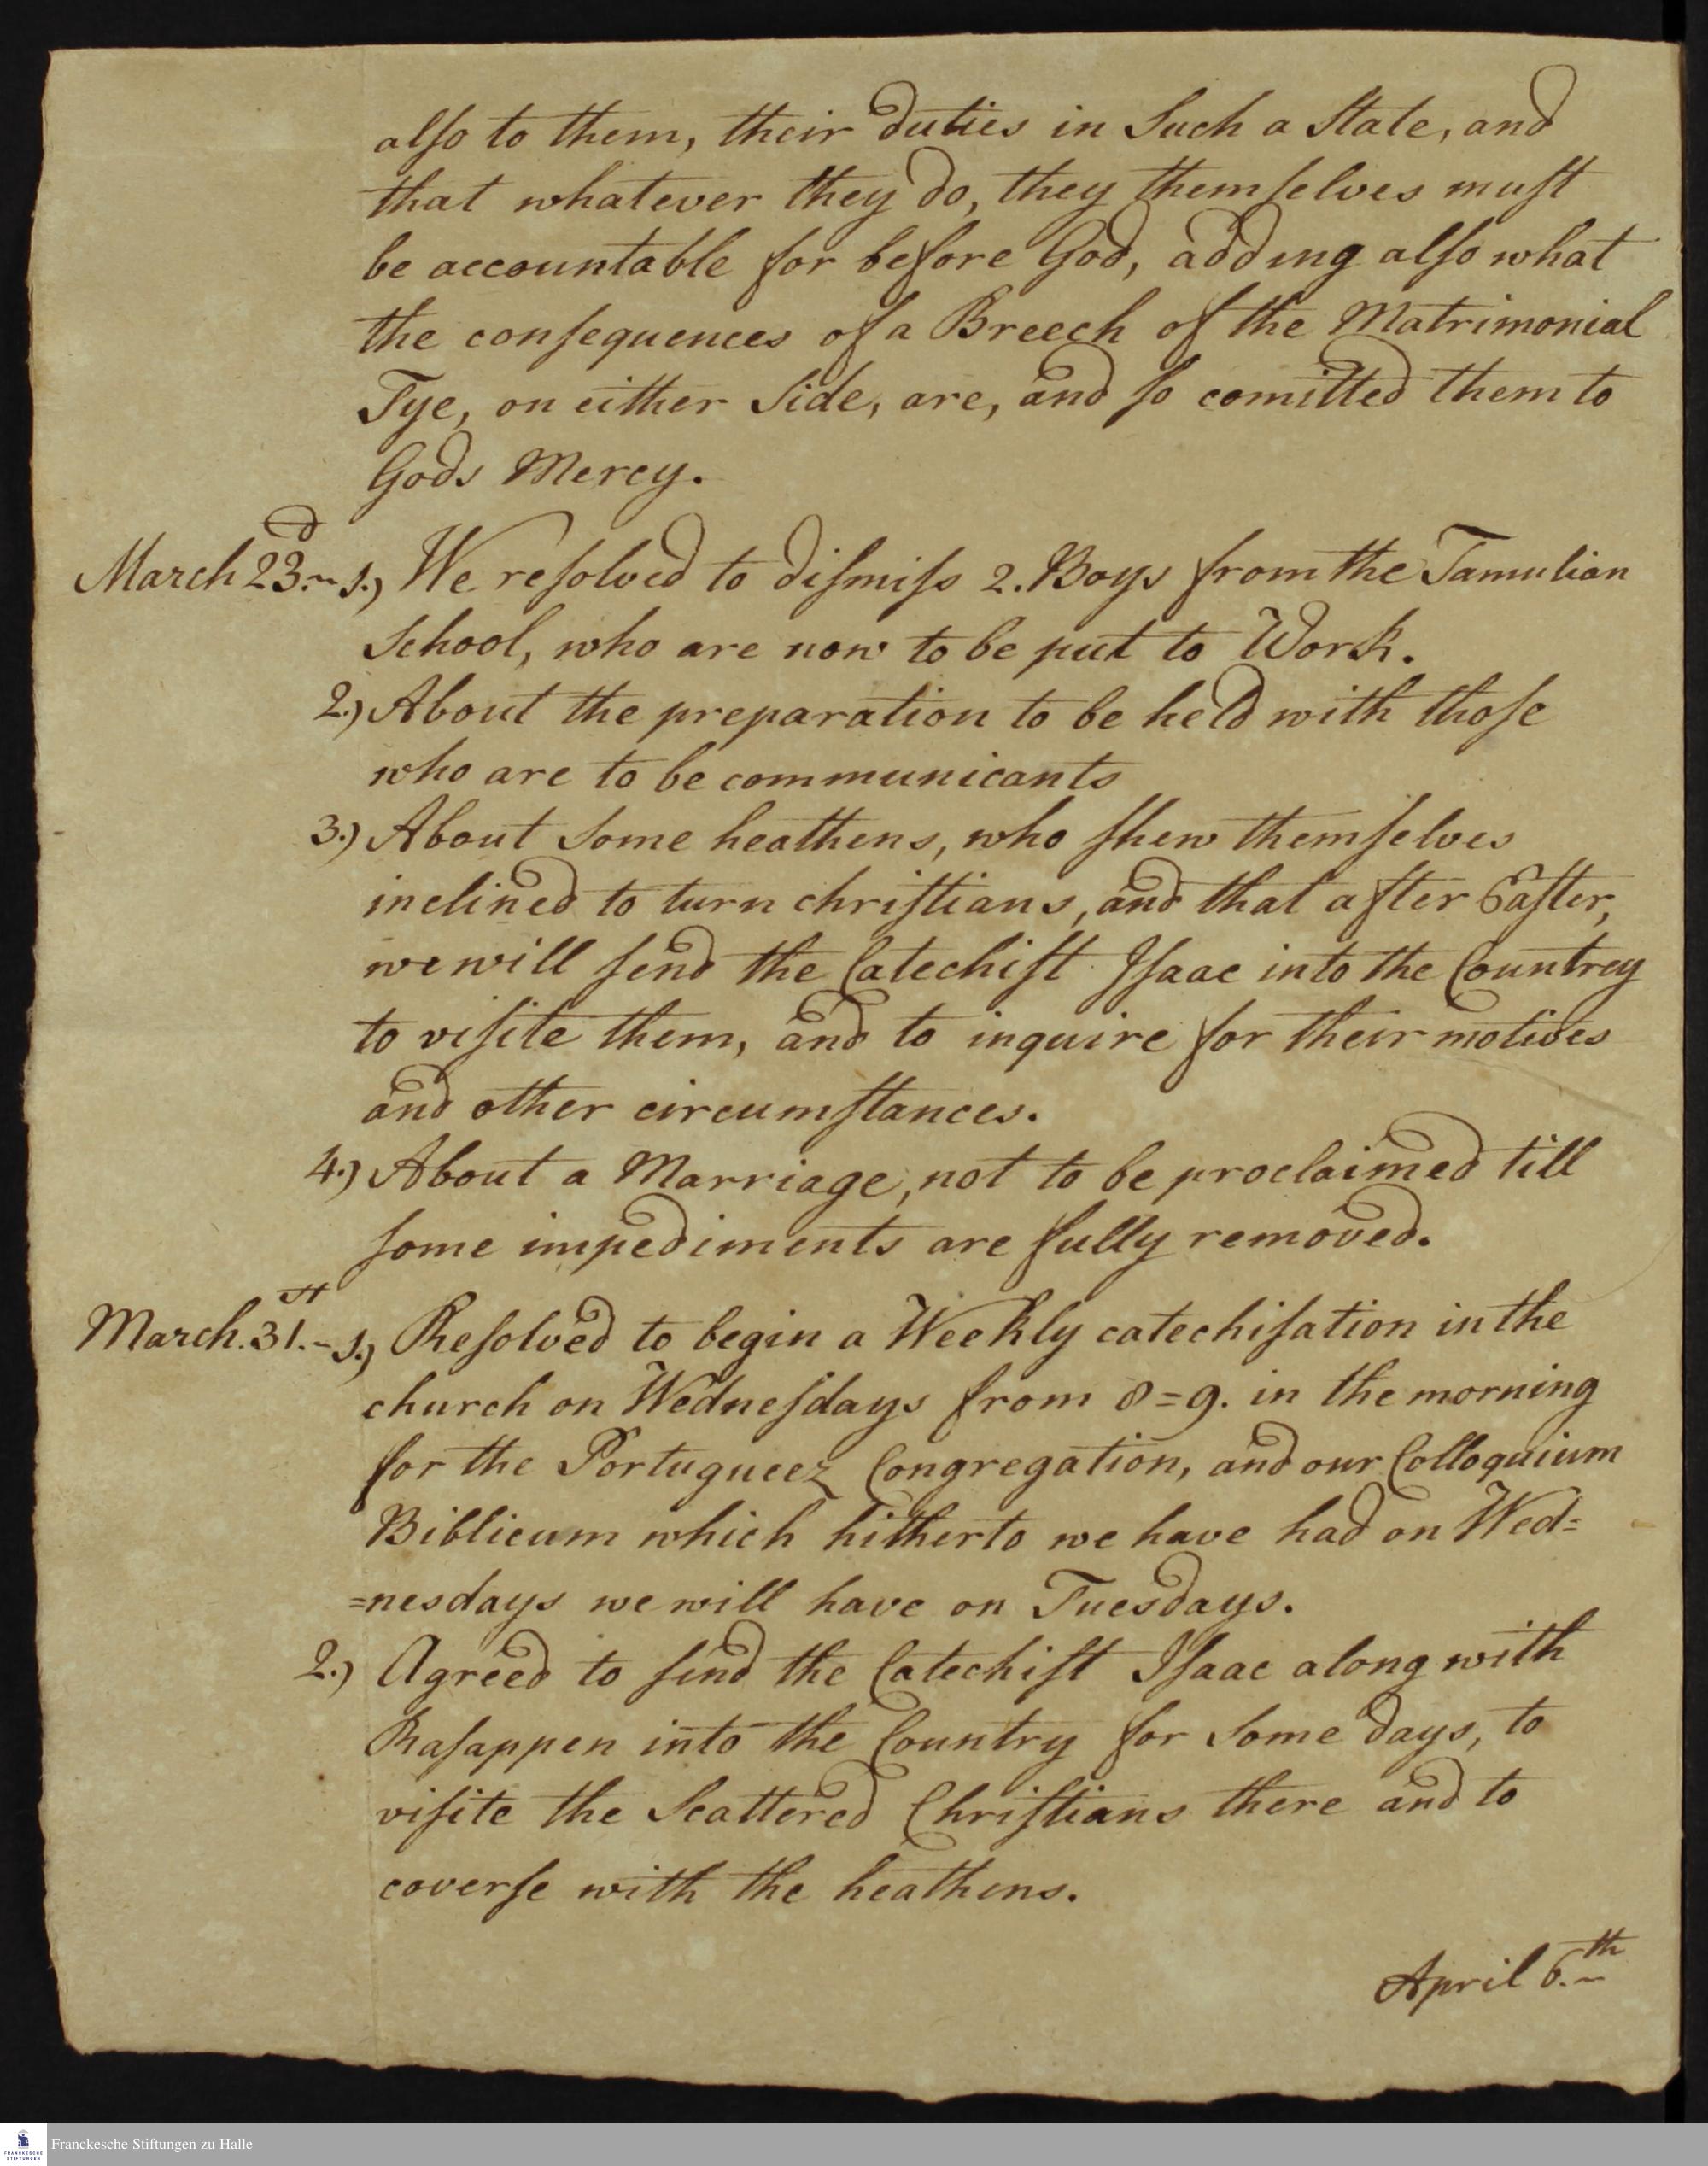 also to them, their duties in Such a State, and
that whatever they do, they themselves must
be accountable for before God, adding also what
the consequences of a Breech of the Matrimonial
Tye, on either Side, are, and so comitted them to
Gods Mercy.
March 23.d 1.) We resolved to dismiss 2. Boys from the Tamulian
School, who are now to be put to Work.
2.) About the preparation to be held with those
who are to be communicants
3.) About Some heathens, who shew themselves
inclined to turn christians, and that after Easter,
we will send the Catechist Isaac into the Countrey
to visite them, and to inquire for their motives
and other circumstances.
4.) About a Marriage, not to be proclaimed till
some impediments are fully removed.
March. 31.st 1.) Resolved to begin a Weekly catechisation in the
church on Wednesdays from 8=9. in the morning
for the Portugueez Congregation, and our Colloquium
Biblicum which hitherto we have had on Wed=
=nesdays we will have on Tuesdays.
2.) Agreed to send the Catechist Isaac along with
Rasappen into the Country for Some days, to
visite the Scattered Christians there and to
coverse with the heathens.
April 6.th
FRANCKESCHE STIFTUNGEN
Franckesche Stiftungen zu Halle